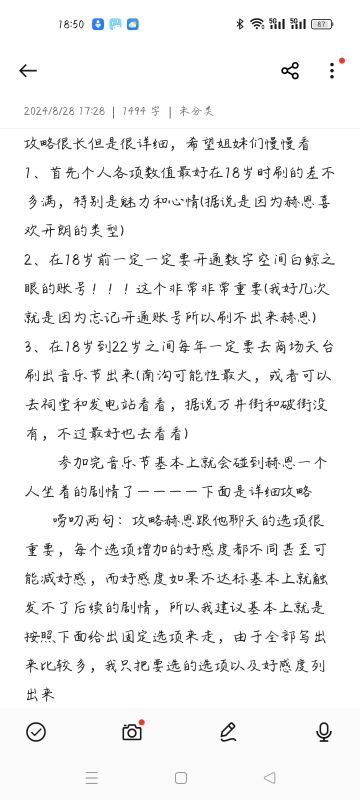 18:50
5G
5G
87
2024/8/28 17:28 | 1494 字 | 未分类
攻略很长但是很详细，希望姐妹们慢慢看
1、首先个人各项数值最好在18岁时刷的差不
多满，特别是魅力和心情(据说是因为赫恩喜
欢开朗的类型)
2、在18岁前一定一定要开通数字空间白鲸之
眼的账号！！！这个非常非常重要(我好几次
就是因为忘记开通账号所以刷不出来赫恩)
3、在18岁到22岁之间每年一定要去商场天台
刷出音乐节出来(南沟可能性最大，或者可以
去祠堂和发电站看看，据说万井街和破街没
有，不过最好也去看看)
参加完音乐节基本上就会碰到赫恩一个
人坐着的剧情了————下面是详细攻略
唠叨两句：攻略赫恩跟他聊天的选项很
重要，每个选项增加的好感度都不同甚至可
能减好感，而好感度如果不达标基本上就触
发不了后续的剧情，所以我建议基本上就是
按照下面给出固定选项来走，由于全部写出
来比较多，我只把要选的选项以及好感度列
出来